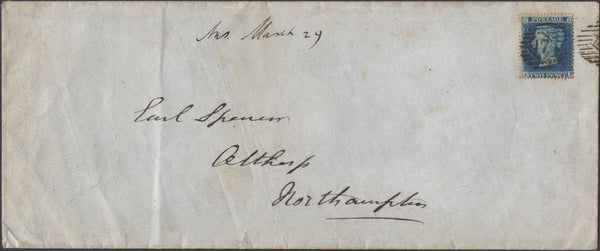 Ans March 29
POSTAGE
TWO PENCE
Earl Spencer
Althorp
Northampton